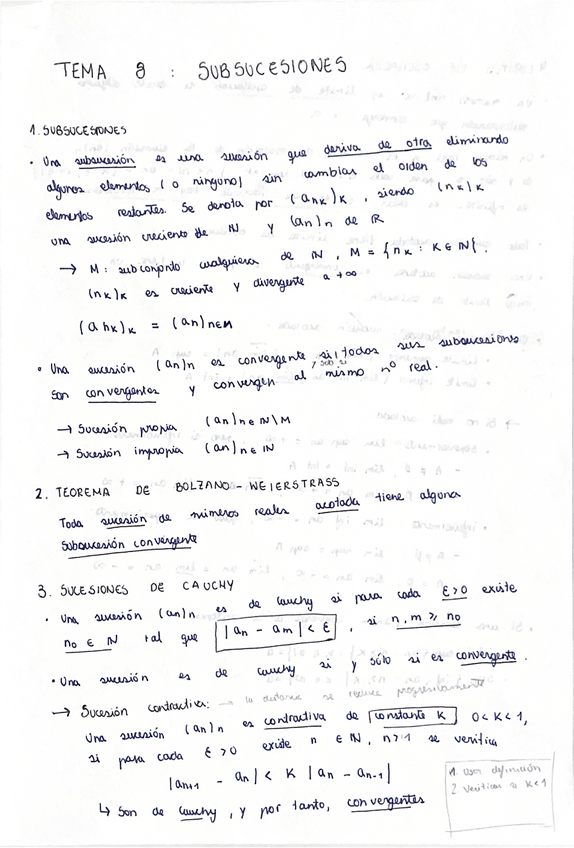 TEMA 8 : SUBSUCESIONES
1. SUBSUCESIONES
• Una subsucesión es una sucesión que deriva de otra eliminando
algunos elementos (o ninguno) sin cambiar el orden de los
elementos restantes. Se denota por (ank)k, siendo (nk)k
una sucesión creciente de ℕ y (an)n de ℝ
→ M: subconjunto cualquiera de ℕ, M = {nk : K ∈ ℕ}.
(nk)k es creciente y divergente a +∞
(ank)k = (an)n∈M
• Una sucesión (an)n es convergente si todas sus subsucesiones
y solo si
son convergentes y convergen al mismo nº real.
→ Sucesión propia (an)n∈ℕ\M
→ Sucesión impropia (an)n∈ℕ
2. TEOREMA DE BOLZANO-WEIERSTRASS
Toda sucesión de números reales acotada tiene alguna
subsucesión convergente
3. SUCESIONES DE CAUCHY
• Una sucesión (an)n es de Cauchy si para cada ε>0 existe
no ∈ ℕ tal que |an - am| < ε, si n,m ≥ no
• Una sucesión es de Cauchy si y sólo si es convergente.
→ Sucesión contractiva: → la distancia se reduce progresivamente
Una sucesión (an)n es contractiva de constante K 0<K<1,
si para cada ε>0 existe n ∈ ℕ, n>1 se verifica
|an+1 - an| < K |an - an-1|
↳ Son de Cauchy, y por tanto, convergentes
1. Usar definición
2 Verificar si K<1